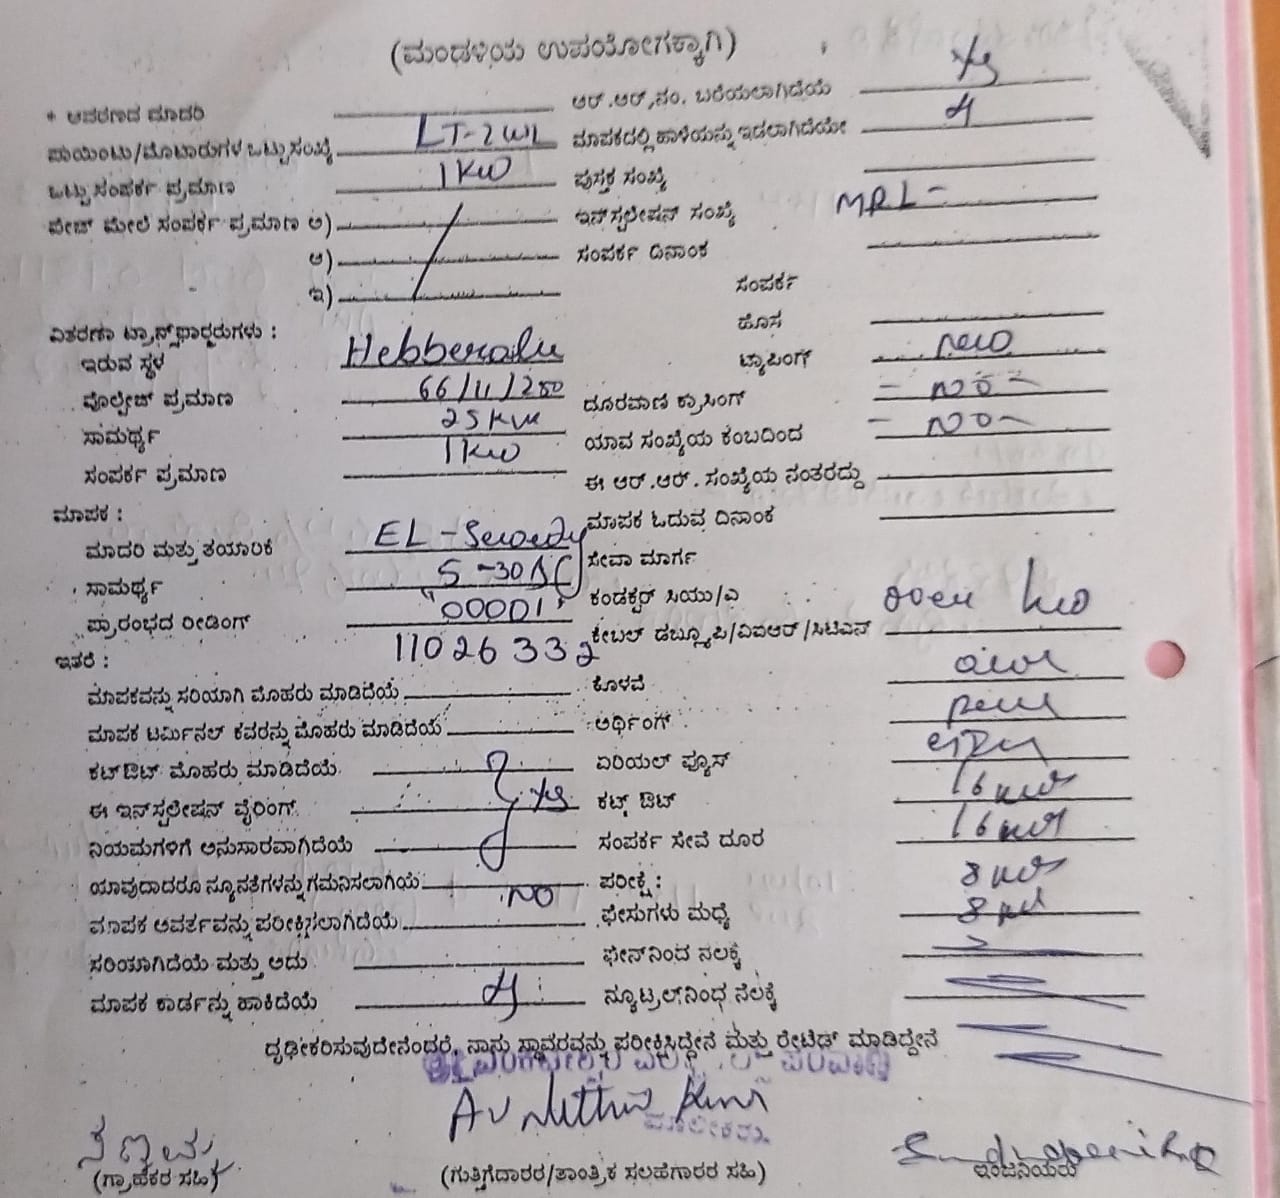 (ಮಂಡಳಿಯ ಉಪಯೋಗಕ್ಕಾಗಿ)
* ಆವರಣದ ಮಾದರಿ
ಆರ್.ಆರ್.ನಂ. ಬರೆಯಲಾಗಿದೆಯೇ Yes
ಪಾಯಿಂಟು/ಮೊಟಾರುಗಳ ಒಟ್ಟು ಸಂಖ್ಯೆ LT-2
ಮಾಪಕದಲ್ಲಿ ಹಾಳೆಯನ್ನು ಇಡಲಾಗಿದೆಯೇ
ಒಟ್ಟು ಸಂಪರ್ಕ ಪ್ರಮಾಣ 1 KW
ಪುಸ್ತಕ ಸಂಖ್ಯೆ
ಪೇಜ್ ಮೇಲೆ ಸಂಪರ್ಕ ಪ್ರಮಾಣ ಅ)
ಇನ್‌ಸ್ಟಲೇಷನ್ ಸಂಖ್ಯೆ MRL-
ಆ)
ಸಂಪರ್ಕ ದಿನಾಂಕ
ಇ)
ಸಂಪರ್ಕ
ವಿತರಣಾ ಟ್ರಾನ್ಸ್‌ಫಾರ್ಮರುಗಳು :
ಹೊಸ
ಇರುವ ಸ್ಥಳ Hebberalu
ಟ್ಯಾಪಿಂಗ್ new
ವೊಲ್ಟೇಜ್ ಪ್ರಮಾಣ 66/11/250
ದೂರವಾಣಿ ಕ್ರಾಸಿಂಗ್ - NO -
ಸಾಮರ್ಥ್ಯ 25
ಯಾವ ಸಂಖ್ಯೆಯ ಕಂಬದಿಂದ - NO -
ಸಂಪರ್ಕ ಪ್ರಮಾಣ 1 KW
ಈ ಆರ್.ಆರ್. ಸಂಖ್ಯೆಯ ನಂತರದ್ದು
ಮಾಪಕ :
ಮಾಪಕ ಓದುವ ದಿನಾಂಕ
ಮಾದರಿ ಮತ್ತು ತಯಾರಿಕೆ EL-Sewedy
ಸೇವಾ ಮಾರ್ಗ
ಸಾಮರ್ಥ್ಯ 5-30A
ಕಂಡಕ್ಟರ್ ಸಿಯು/ಎ
ಪ್ರಾರಂಭದ ರೀಡಿಂಗ್ "00001"
ಕೇಬಲ್ ಡಬ್ಲ್ಯೂಪಿ/ಎಐಆರ್/ಸಿಟಿಎಸ್
ಇತರೆ : 11026332
ಮಾಪಕವನ್ನು ಸರಿಯಾಗಿ ಮೊಹರು ಮಾಡಿದೆಯೆ
ಕೊಳವೆ
ಮಾಪಕ ಟರ್ಮಿನಲ್ ಕವರನ್ನು ಮೊಹರು ಮಾಡಿದೆಯೆ
ಅರ್ಥಿಂಗ್
ಕಟ್‌ಔಟ್ ಮೊಹರು ಮಾಡಿದೆಯೆ
ಏರಿಯಲ್ ಫ್ಯೂಸ್
ಈ ಇನ್‌ಸ್ಟಲೇಷನ್ ವೈರಿಂಗ್ Yes
ಕಟ್ಔಟ್ 16
ನಿಯಮಗಳಿಗೆ ಅನುಸಾರವಾಗಿದೆಯೆ
ಸಂಪರ್ಕ ಸೇವೆ ದೂರ 16
ಯಾವುದಾದರೂ ನ್ಯೂನತೆಗಳನ್ನು ಗಮನಿಸಲಾಗಿಯೆ NO
ಪರೀಕ್ಷೆ : 8
ಮಾಪಕ ಆವರ್ತವನ್ನು ಪರೀಕ್ಷಿಸಲಾಗಿದೆಯೆ
ಫೇಸುಗಳು ಮಧ್ಯೆ 8
ಸರಿಯಾಗಿದೆಯೆ ಮತ್ತು ಅದು
ಫೇಸ್‌ನಿಂದ ನೆಲಕ್ಕೆ
ಮಾಪಕ ಕಾರ್ಡನ್ನು ಹಾಕಿದೆಯೆ
ನ್ಯೂಟ್ರಲ್‌ನಿಂಧ ನೆಲಕ್ಕೆ
ದೃಢೀಕರಿಸುವುದೇನೆಂದರೆ, ನಾನು ಸ್ಥಾವರವನ್ನು ಪರೀಕ್ಷಿಸಿದ್ದೇನೆ ಮತ್ತು ರೇಟೆಡ್ ಮಾಡಿದ್ದೇನೆ
ಮಾಲೀಕರು.
(ಗ್ರಾಹಕರ ಸಹಿ)
(ಗುತ್ತಿಗೆದಾರರ/ತಾಂತ್ರಿಕ ಸಲಹೆಗಾರರ ಸಹಿ)
ಇಂಜಿನಿಯರು